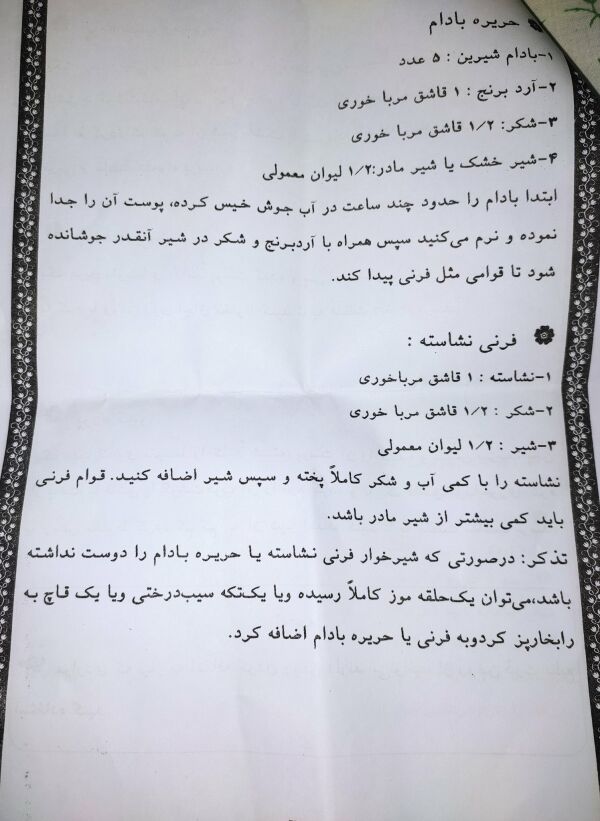 حریره بادام
۱-بادام شیرین : ۵ عدد
۲-آرد برنج : ۱ قاشق مربا خوری
۳-شکر: ۱/۲ قاشق مربا خوری
۴-شیر خشک یا شیر مادر:۱/۲ لیوان معمولی
ابتدا بادام را حدود چند ساعت در آب جوش خیس کرده، پوست آن را جدا
نموده و نرم می‌کنید سپس همراه با آردبرنج و شکر در شیر آنقدر جوشانده
شود تا قوامی مثل فرنی پیدا کند.
فرنی نشاسته :
۱-نشاسته : ۱ قاشق مرباخوری
۲-شکر : ۱/۲ قاشق مربا خوری
۳-شیر : ۱/۲ لیوان معمولی
نشاسته را با کمی آب و شکر کاملاً پخته و سپس شیر اضافه کنید. قوام فرنی
باید کمی بیشتر از شیر مادر باشد.
تذکر: درصورتی که شیرخوار فرنی نشاسته یا حریره بادام را دوست نداشته
باشد،می‌توان یک‌حلقه موز کاملاً رسیده ویا یک‌تکه سیب‌درختی ویا یک قاچ به
رابخارپز کردوبه فرنی یا حریره بادام اضافه کرد.